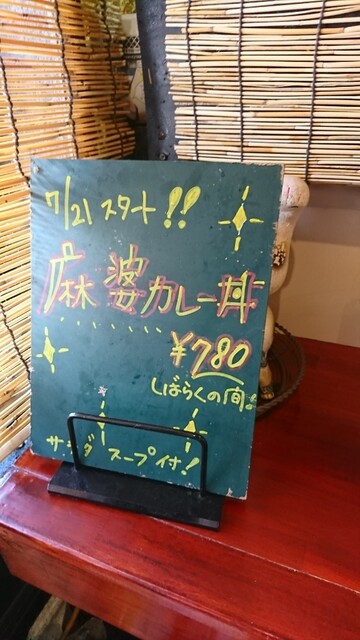 7/21 スタート!!
麻婆カレー丼
¥780
しばらくの間
スープ付!